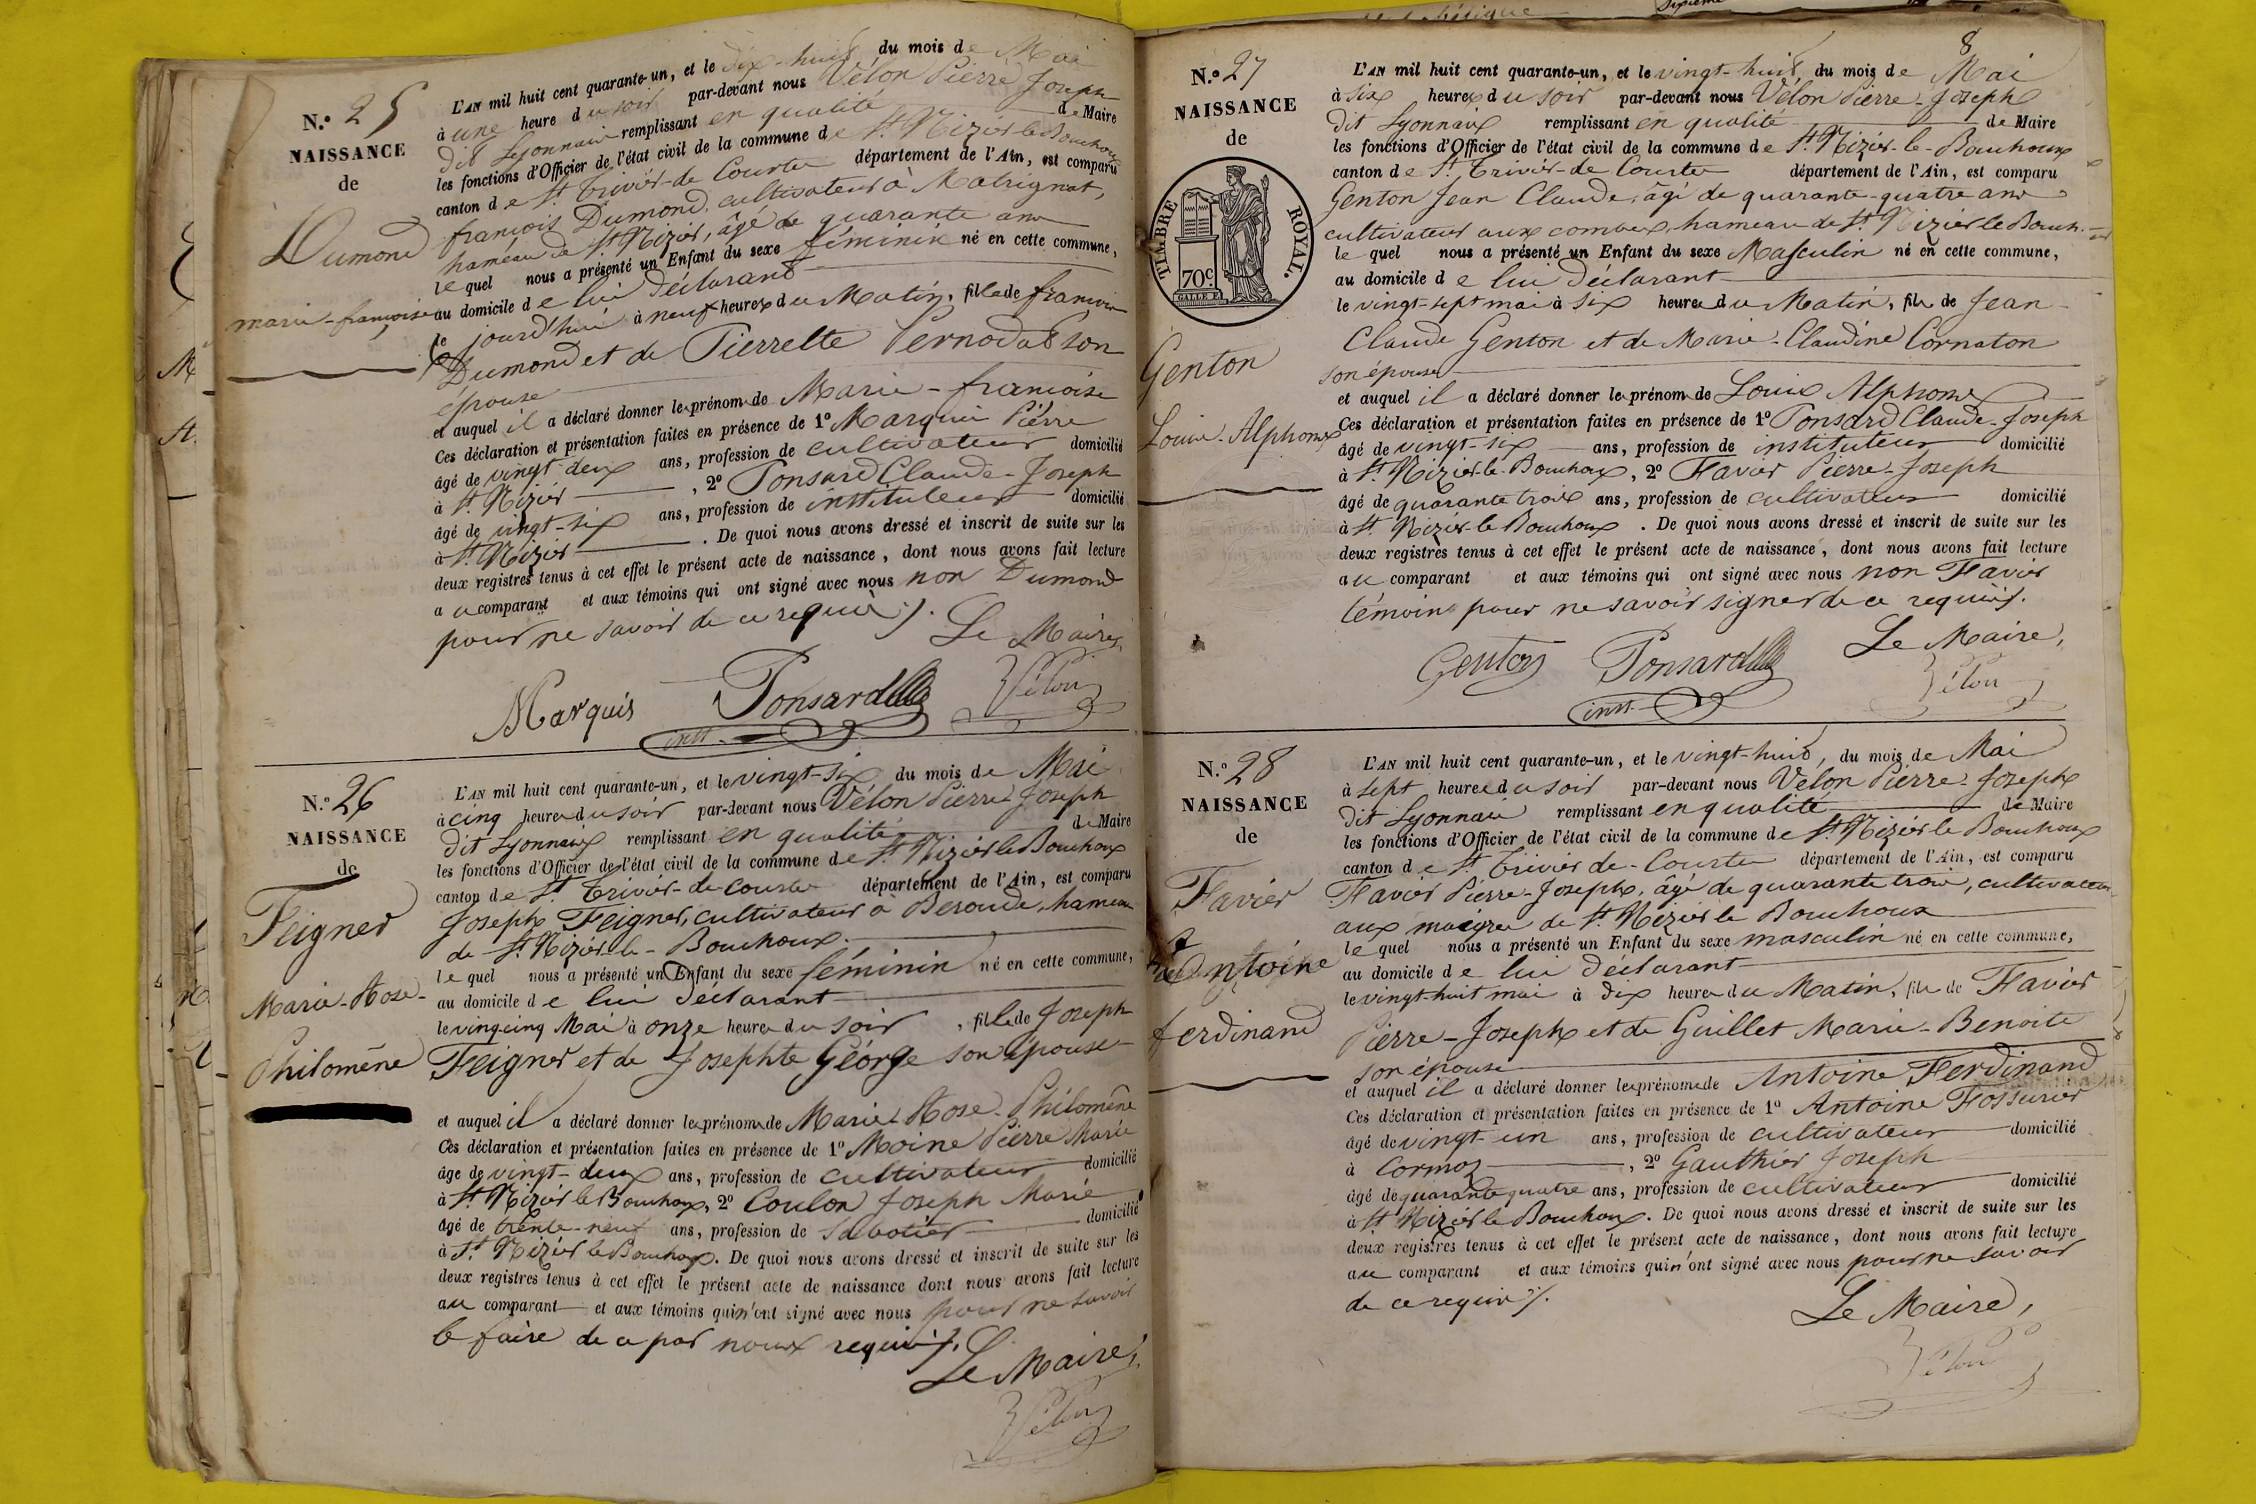 N.º 25
NAISSANCE
de
Dumond
marie-françoise
L'AN mil huit cent quarante-un, et le dix-huit du mois de Mai
à une heure du soir par-devant nous Vélon Pierre Joseph
dit Lyonnais remplissant en qualité de Maire
les fonctions d'Officier de l'état civil de la commune de St. Nizier le Bouchoux
canton de St. Trivier-de Courtes département de l'Ain, est comparu
françois Dumond, cultivateur à Matrignat,
hameau de St Nizier, âgé de quarante ans
lequel nous a présenté un Enfant du sexe féminin né en cette commune,
au domicile de lui Déclarant
le jourd'hui à neuf heures du Matin, fille de françois
Dumond et de Pierrette Pernodat son
épouse
et auquel il a déclaré donner les prénoms de Marie-francoise
Ces déclaration et présentation faites en présence de 1º Marquis Pierre
âgé de vingt deux ans, profession de cultivateur domicilié
à St. Nizier, 2º Ponsard Claude-Joseph
âgé de vingt-six ans, profession de instituteur domicilié
à St. Nizier. De quoi nous avons dressé et inscrit de suite sur les
deux registres tenus à cet effet le présent acte de naissance, dont nous avons fait lecture
au comparant et aux témoins qui ont signé avec nous non Dumond
pour ne savoir de ce requis ./.
Le Maire
Marquis Ponsard Vélon
instr.
N.º 26
NAISSANCE
de
Feigner
Marie-Rose-
Philomène
L'AN mil huit cent quarante-un, et le vingt-six du mois de Mai
à cinq heures du soir par-devant nous Vélon Pierre Joseph
dit Lyonnais remplissant en qualité de Maire
les fonctions d'Officier de l'état civil de la commune de St. Nizier le Bouchoux
canton de St. Trivier-de courtes département de l'Ain, est comparu
Joseph Feigner, cultivateur à Beroude, hameau
de St. Nizier-le-Bouchoux.
lequel nous a présenté un Enfant du sexe féminin né en cette commune,
au domicile de lui déclarant
le vingcinq Mai à onze heures du soir, fille de Joseph
Feigner et de Josephte Géorge son épouse
et auquel il a déclaré donner les prénoms de Marie-Rose-Philomène
Ces déclaration et présentation faites en présence de 1º Moine Pierre Marie
âgé de vingt-deux ans, profession de cultivateur domicilié
à St. Nizier le Bouchoux, 2º Coulon Joseph Marie
âgé de trente-neuf ans, profession de sabotier domicilié
à St. Nizier le Bouchoux. De quoi nous avons dressé et inscrit de suite sur les
deux registres tenus à cet effet le présent acte de naissance dont nous avons fait lecture
au comparant et aux témoins qui n'ont signé avec nous pour ne savoir
le faire de ce par nous requis ./.
Le Maire,
Vélon
8
N.º 27
NAISSANCE
de
TIMBRE ROYAL.
70 c.
Genton
Louis-Alphonse
L'AN mil huit cent quarante-un, et le vingt-huit du mois de Mai
à six heures du soir par-devant nous Vélon Pierre-Joseph
dit Lyonnais remplissant en qualité de Maire
les fonctions d'Officier de l'état civil de la commune de St. Nizier-le-Bouchoux
canton de St. Trivier-de Courtes département de l'Ain, est comparu
Genton Jean Claude, âgé de quarante-quatre ans
cultivateur aux combes, hameau de St. Nizier le Bouch.
lequel nous a présenté un Enfant du sexe Masculin né en cette commune,
au domicile de lui Déclarant
le vingt-sept mai à six heures du Matin, fils de Jean
Claude Genton et de Marie-Claudine Cornaton
son épouse
et auquel il a déclaré donner les prénoms de Louis Alphonse
Ces déclaration et présentation faites en présence de 1º Ponsard Claude-Joseph
âgé de vingt-six ans, profession de instituteur domicilié
à St. Nizier-le-Bouchoux, 2º Favier Pierre-Joseph
âgé de quarante trois ans, profession de cultivateur domicilié
à St. Nizier-le-Bouchoux. De quoi nous avons dressé et inscrit de suite sur les
deux registres tenus à cet effet le présent acte de naissance, dont nous avons fait lecture
au comparant et aux témoins qui ont signé avec nous non Favier
témoins pour ne savoir signer de ce requis ./.
Le Maire,
Genton Ponsard Vélon
instr.
N.º 28
NAISSANCE
de
Favier
Antoine
ferdinand
L'AN mil huit cent quarante-un, et le vingt-huit, du mois de Mai
à sept heures du soir par-devant nous Vélon Pierre-Joseph
dit Lyonnais remplissant en qualité de Maire
les fonctions d'Officier de l'état civil de la commune de St. Nizier le Bouchoux
canton de St. Trivier de-Courtes département de l'Ain, est comparu
Favier Pierre-Joseph, âgé de quarante trois, cultivateur
aux maigres de St. Nizier le Bouchoux
lequel nous a présenté un Enfant du sexe masculin né en cette commune,
au domicile de lui Déclarant
le vingt-huit mai à dix heures du Matin, fils de Favier
Pierre-Joseph et de Guillet Marie-Benoite
son épouse
et auquel il a déclaré donner les prénoms de Antoine Ferdinand
Ces déclaration et présentation faites en présence de 1º Antoine Fossurier
âgé de vingt-un ans, profession de cultivateur domicilié
à Cormoz, 2º Gauthier Joseph
âgé de quarante quatre ans, profession de cultivateur domicilié
à St Nizier le Bouchoux. De quoi nous avons dressé et inscrit de suite sur les
deux registres tenus à cet effet le présent acte de naissance, dont nous avons fait lecture
au comparant et aux témoins qui n'ont signé avec nous pour ne savoir
de ce requis ./.
Le Maire,
Vélon